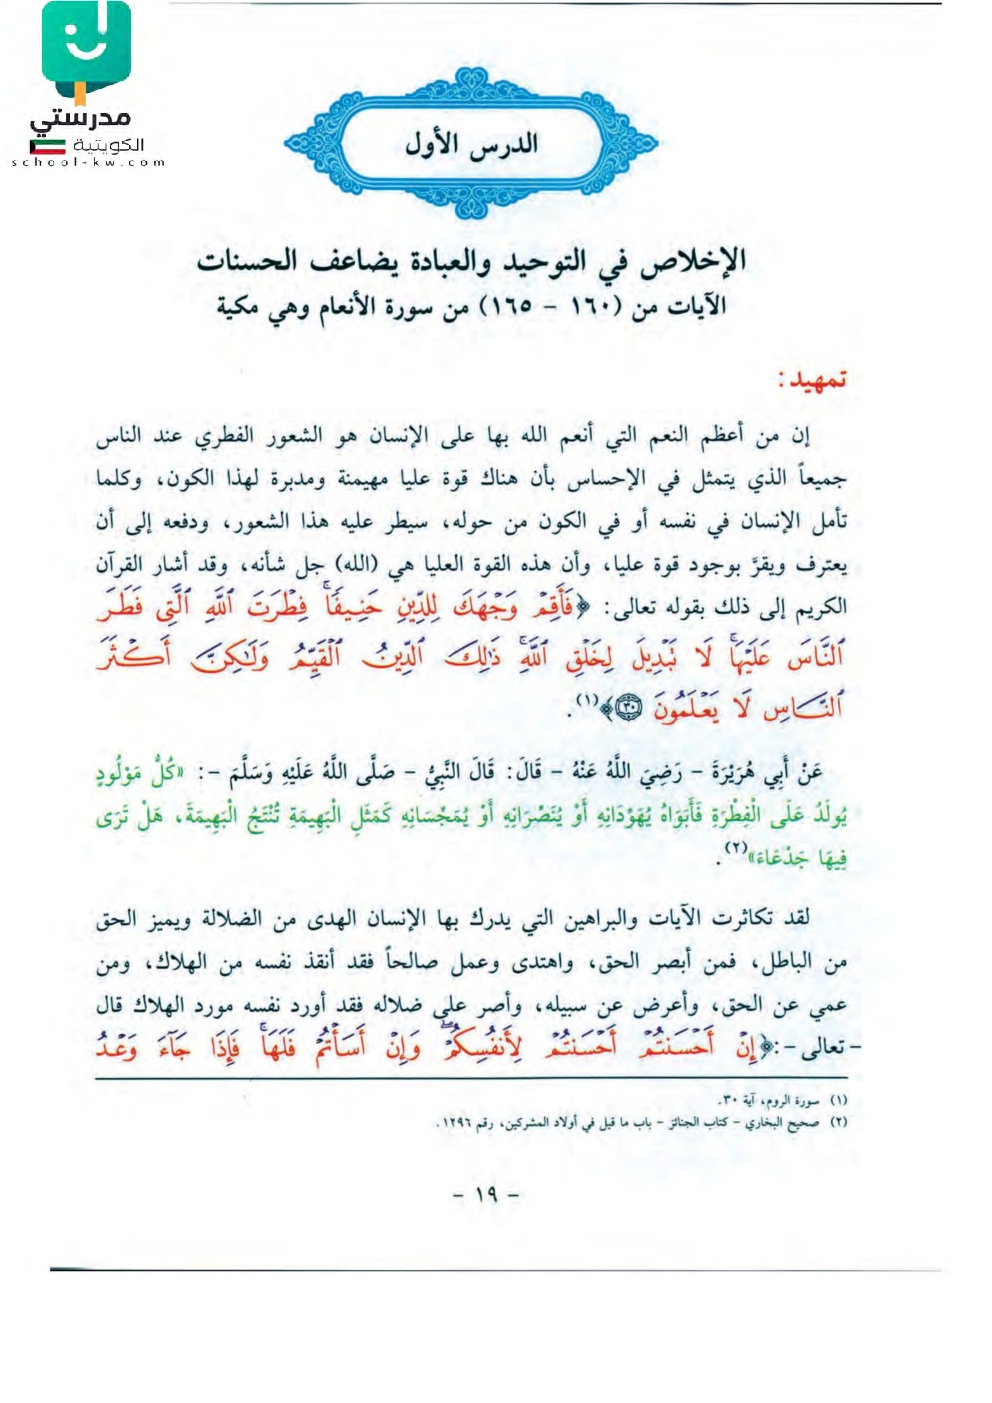 مدرستي
الكويتية
school-kw.com
الدرس الأول
الإخلاص في التوحيد والعبادة يضاعف الحسنات
الآيات من (١٦٠ - ١٦٥) من سورة الأنعام وهي مكية
تمهيد:
إن من أعظم النعم التي أنعم الله بها على الإنسان هو الشعور الفطري عند الناس
جميعاً الذي يتمثل في الإحساس بأن هناك قوة عليا مهيمنة ومدبرة لهذا الكون، وكلما
تأمل الإنسان في نفسه أو في الكون من حوله، سيطر عليه هذا الشعور، ودفعه إلى أن
يعترف ويقرَّ بوجود قوة عليا، وأن هذه القوة العليا هي (الله) جل شأنه، وقد أشار القرآن
الكريم إلى ذلك بقوله تعالى: ﴿فَأَقِمْ وَجْهَكَ لِلدِّينِ حَنِيفًا ۚ فِطْرَتَ ٱللَّهِ ٱلَّتِي فَطَرَ
ٱلنَّاسَ عَلَيْهَا ۚ لَا تَبْدِيلَ لِخَلْقِ ٱللَّهِ ۚ ذَٰلِكَ ٱلدِّينُ ٱلْقَيِّمُ وَلَٰكِنَّ أَكْثَرَ
ٱلنَّاسِ لَا يَعْلَمُونَ ٣٠﴾(١).
عَنْ أَبِي هُرَيْرَةَ - رَضِيَ اللَّهُ عَنْهُ - قَالَ: قَالَ النَّبِيُّ - صَلَّى اللَّهُ عَلَيْهِ وَسَلَّمَ -: «كُلُّ مَوْلُودٍ
يُولَدُ عَلَى الْفِطْرَةِ فَأَبَوَاهُ يُهَوِّدَانِهِ أَوْ يُنَصِّرَانِهِ أَوْ يُمَجِّسَانِهِ كَمَثَلِ الْبَهِيمَةِ تُنْتَجُ الْبَهِيمَةَ، هَلْ تَرَى
فِيهَا جَدْعَاءَ»(٢).
لقد تكاثرت الآيات والبراهين التي يدرك بها الإنسان الهدى من الضلالة ويميز الحق
من الباطل، فمن أبصر الحق، واهتدى وعمل صالحاً فقد أنقذ نفسه من الهلاك، ومن
عمي عن الحق، وأعرض عن سبيله، وأصر على ضلاله فقد أورد نفسه مورد الهلاك قال
- تعالى -:﴿إِنْ أَحْسَنتُمْ أَحْسَنتُمْ لِأَنفُسِكُمْ ۖ وَإِنْ أَسَأْتُمْ فَلَهَا ۚ فَإِذَا جَآءَ وَعْدُ
(١) سورة الروم، آية ٣٠.
(٢) صحيح البخاري - كتاب الجنائز - باب ما قيل في أولاد المشركين، رقم ١٢٩٦.
- ١٩ -